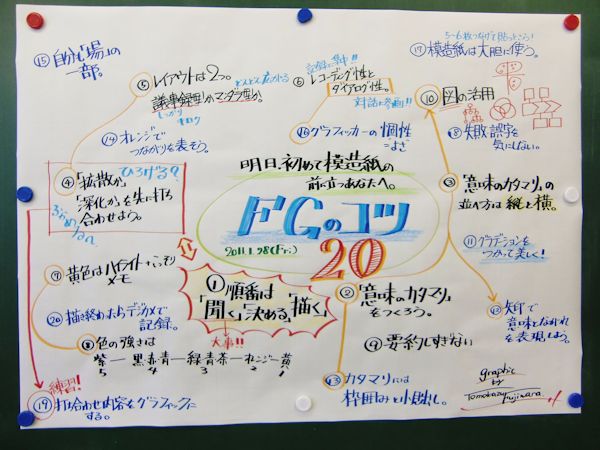 明日、初めて模造紙の
前に立つあなたへ。
FGのコツ
20
2011.1.28(Fri)
① 順番は
「聞く」「決める」「描く」
大事!!
② 「意味のカタマリ」
をつくろう。
③ 「意味のカタマリ」の
並べ方は縦と横。
④ 「拡散か、
深化か」を先に打ち
合わせよう。
ひろげる?
ふかめる?
⑤ レイアウトは2つ。
議事録型かマンダラ型か。
しっかり
どんどん広がる
⑥ レコーディング性と
ダイアログ性。
記録に集中!!
対話に参画!!
⑦ 黄色はハイライト+こっそり
メモ
⑧ 色の強さは
紫―黒赤青―緑青茶―オレンジ―黄
5 4 3 2 1
⑨ 要約しすぎない
⑩ 図の活用
⑪ グラデーションを
つかって美しく!
⑫ 矢印で
意味とながれ
を表現しよう。
⑬ カタマリには
枠囲みと小見出し。
⑭ オレンジで
つながりを表そう。
⑮ 自分も「場」の
一部。
⑯ グラフィッカーの個性
=よさ
⑰ 模造紙は大胆に使う。
5~6枚つなげて貼っとこう!
⑱ 失敗、誤字
気にしない。
練習!
⑲ 打ち合わせ内容をグラフィックに
する。
⑳ 描き終わったらデジカメで
記録。
graphic
by
Tomokazu
Fujiwara.